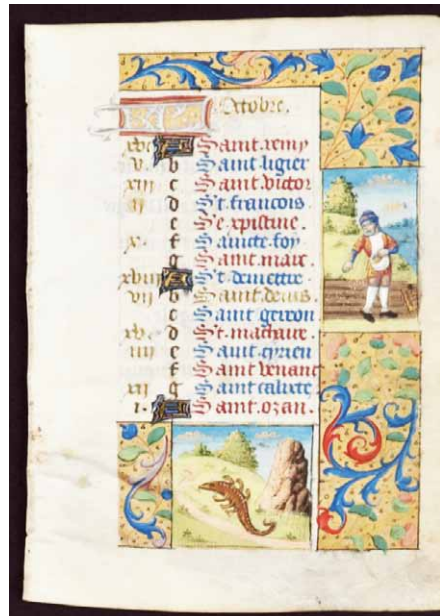 Octobre.
xvi Saint remy
v. b Saint ligier
xiii c Saint victor
ii d St. francois
e Ste xpistine.
x. f Saincte foy
g Saint marc
xviii St. demettre
vii b Saint denis.
c Saint gereon
xv. d St. machaire.
iiii e Saint cyrien
f Saint venant
xii g Saint calixte
i. Saint ozan.